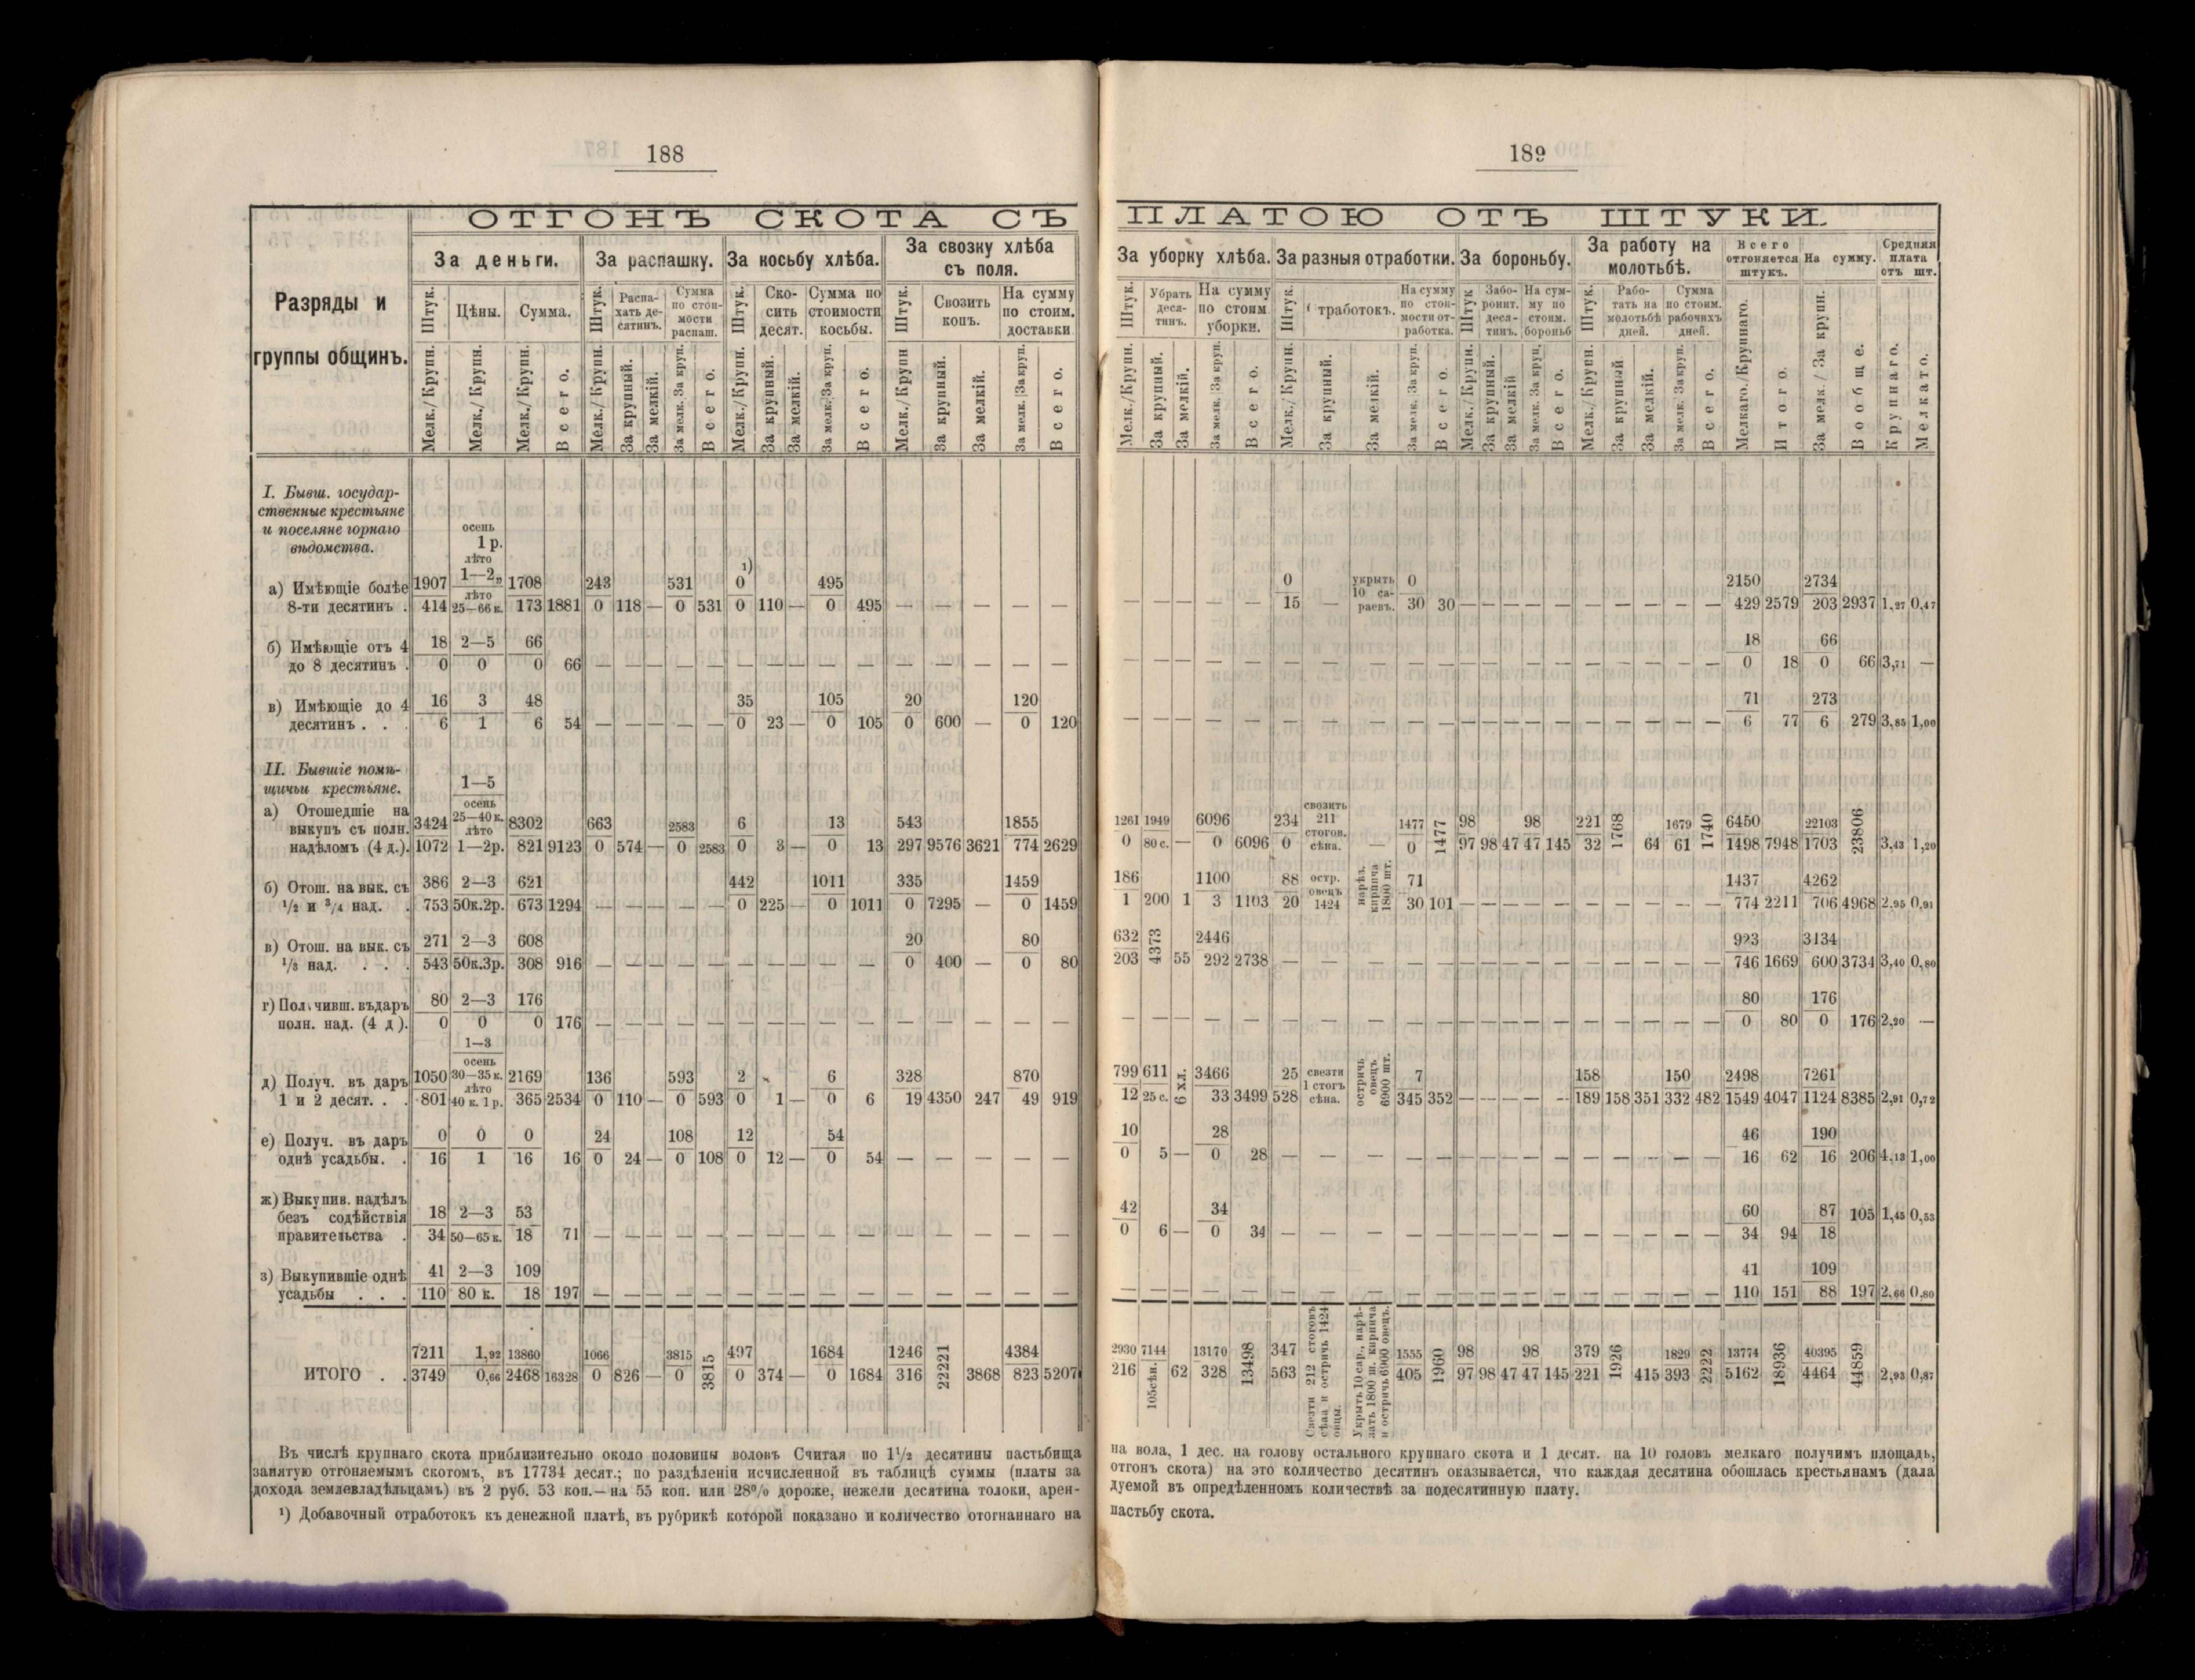 188
ОТГОНЪ СКОТА СЪ
Разряды и группы общинъ.
За деньги. За распашку. За косьбу хлѣба. За свозку хлѣба съ поля.
Штук. Цѣны. Сумма. Штук. Распахать десятинъ. Сумма по стоимости распаш. Штук. Скосить десят. Сумма по стоимости косьбы. Штук. Свозить копъ. На сумму по стоим. доставки
Мелк./Крупн. Мелк./Крупн. Мелк./Крупн. Всего. Мелк./Крупн. За крупный. За мелкій. За мелк. За круп. Всего. Мелк./Крупн. За крупный. За мелкій. За мелк. За круп. Всего. Мелк./Крупн За крупный. За мелкій. За мелк. За круп. Всего.
I. Бывш. государ-
ственные крестьяне
и поселяне горнаго
вѣдомства.
осень
1 р.
лѣто
а) Имѣющіе болѣе 1907 1—2„ 1708 243 531 0 ¹) 495
лѣто
8-ти десятинъ . 414 25—66 к. 173 1881 0 118 — 0 531 0 110 — 0 495 — — — — —
б) Имѣющіе отъ 4 18 2—5 66
до 8 десятинъ . 0 0 0 66 — — — — — — — — — — — — — — —
в) Имѣющіе до 4 16 3 48 35 105 20 120
десятинъ . . . 6 1 6 54 — — — — — 0 23 — 0 105 0 600 — 0 120
II. Бывшіе помѣ-
щичьи крестьяне.
1—5
осень
а) Отошедшіе на
выкупъ съ полн. 3424 25—40 к. 8302 663 2583 6 13 543 1855
лѣто
надѣломъ (4 д.). 1072 1—2р. 821 9123 0 574 — 0 2583 0 3 — 0 13 297 9576 3621 774 2629
б) Отош. на вык. съ 386 2—3 621 442 1011 335 1459
½ и ¾ над. . 753 50к.2р. 673 1294 — — — — — 0 225 — 0 1011 0 7295 — 0 1459
в) Отош. на вык. съ 271 2—3 608 20 80
⅓ над. . . . 543 50к.3р. 308 916 — — — — — — — — — — 0 400 — 0 80
г) Получивш. въ даръ 80 2—3 176
полн. над. (4 д). 0 0 0 176 — — — — — — — — — — — — — — —
1—3
осень
д) Получ. въ даръ 1050 30—35 к. 2169 136 593 2 6 328 870
лѣто
1 и 2 десят. . . 801 40 к. 1 р. 365 2534 0 110 — 0 593 0 1 — 0 6 19 4350 247 49 919
е) Получ. въ даръ 0 0 0 24 108 12 54
однѣ усадьбы. . 16 1 16 16 0 24 — 0 108 0 12 — 0 54 — — — — —
ж) Выкупив. надѣлъ
безъ содѣйствія 18 2—3 53
правительства . 34 50—65 к. 18 71 — — — — — — — — — — — — — — —
з) Выкупившіе однѣ 41 2—3 109
усадьбы . . . 110 80 к. 18 197 — — — — — — — — — — — — — — —
7211 1,92 13860 1066 3815 497 1684 1246 4384
ИТОГО . . 3749 0,66 2468 16328 0 826 — 0 3815 0 374 — 0 1684 316 22221 3868 823 5207
Въ числѣ крупнаго скота приблизительно около половины воловъ Считая по 1½ десятины пастьбища
занятую отгоняемымъ скотомъ, въ 17734 десят.; по раздѣленіи исчисленной въ таблицѣ суммы (платы за
дохода землевладѣльцамъ) въ 2 руб. 53 коп.—на 55 коп. или 28% дороже, нежели десятина толоки, арен-
¹) Добавочный отработокъ къ денежной платѣ, въ рубрикѣ которой показано и количество отогнаннаго на
189
ПЛАТОЮ ОТЪ ШТУКИ.
За уборку хлѣба. За разныя отработки. За бороньбу. За работу на молотьбѣ. Всего отгоняется штукъ. На сумму. Средняя плата отъ шт.
Штук. Убрать десятинъ. На сумму по стоим уборки. Штук. тработокъ. На сумму по стоимости отработка. Штук Заборонит. десятинъ. На сумму по стоим. бороньб Штук. Работать на молотьбѣ дней. Сумма по стоим. рабочихъ дней.
Мелк./Крупн. За крупный. За мелкій. За мелк. За круп. Всего. Мелк./Крупн. За крупный. За мелкій. За мелк. За круп. Всего. Мелк./Крупн. За крупный. За мелкій За мелк. За круп. Всего. Мелк./Крупн. За крупный За мелкій. За мелк. За круп. Всего. Мелкаго./Крупнаго. Итого. За мелк / За крупн. Вообще. Крупнаго. Мелкаго.
0 укрыть 0 2150 2734
— — — — — 15 — 10 сараевъ. 30 30 — — — — — — — — — — 429 2579 203 2937 1,27 0,47
18 66
— — — — — — — — — — — — — — — — — — — — 0 18 0 66 3,71 —
71 273
— — — — — — — — — — — — — — — — — — — — 6 77 6 279 3,85 1,00
1261 1949 6096 234 свозить 211 1477 98 98 221 1679 6450 22103
0 80 с. — 0 6096 0 стогов. сѣна. — 0 1477 97 98 47 47 145 32 1768 64 61 1740 1498 7948 1703 23806 3,43 1,20
186 1100 88 остр. 71 1437 4262
1 200 1 3 1103 20 овецъ 1424 нарѣз. кирпича 1800 шт. 30 101 — — — — — — — — — — 774 2211 706 4968 2,95 0,91
632 2446 923 3134
203 4373 55 292 2738 — — — — — — — — — — — — — — — 746 1669 600 3734 3,40 0,80
80 176
— — — — — — — — — — — — — — — — — — — — 0 80 0 176 2,20 —
799 611 3466 25 свезти 7 158 150 2498 7261
12 25 с. 6 хл. 33 3499 528 1 стогъ сѣна. остричь овецъ 6900 шт. 345 352 — — — — — 189 158 351 332 482 1549 4047 1124 8385 2,91 0,72
10 28 46 190
0 5 — 0 28 — — — — — — — — — — — — — — — 16 62 16 206 4,13 1,00
42 34 60 87 105 1,45 0,53
0 6 — 0 34 — — — — — — — — — — — — — — — 34 94 18
41 109
— — — — — — — — — — — — — — — — — — — — 110 151 88 197 2,66 0,80
2930 7144 13170 347 1555 98 98 379 1829 13774 40395
216 105 сѣн. 62 328 13498 563 Свезти 212 стоговъ сѣна и остричь 1424 овцы. Укрыть 10 сар., нарѣзать 1800 ш. кирпича и остричь 6900 овецъ. 405 1960 97 98 47 47 145 221 1926 415 393 2222 5162 18936 4464 44859 2,93 0,87
на вола, 1 дес. на голову остального крупнаго скота и 1 десят. на 10 головъ мелкаго получимъ площадь,
отгонъ скота) на это количество десятинъ оказывается, что каждая десятина обошлась крестьянамъ (дала
дуемой въ опредѣленномъ количествѣ за подесятинную плату.
пастьбу скота.